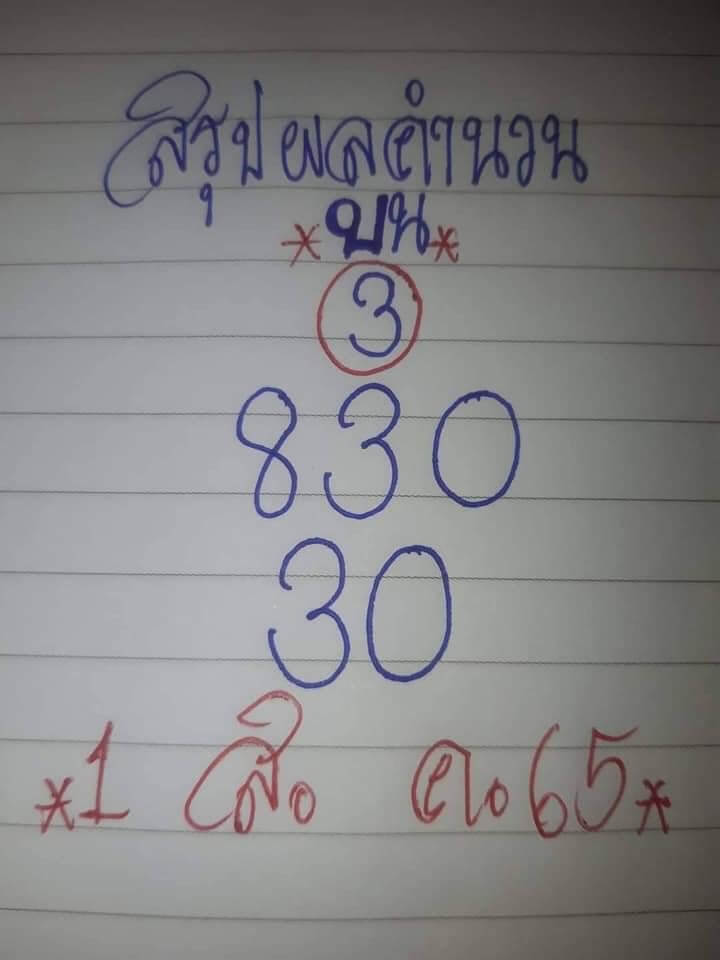 สรุปผลคำนวน
*บน*
3
830
30
*1 ส.ค.65*